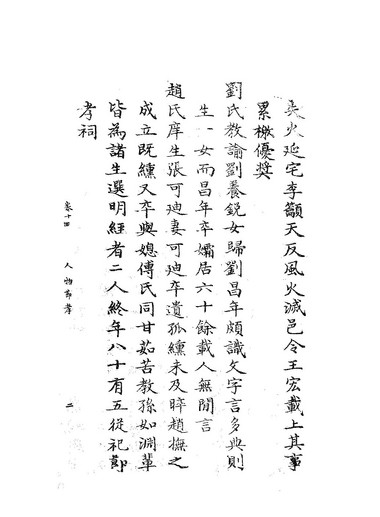 兵火延宅李籲天反風火滅邑令王宏載上其事
累檄優獎
劉氏教諭劉養銳女歸劉昌年頗識文字言多典則
生一女而昌年卒孀居六十餘載人無閒言
趙氏庠生張可廸妻可廸卒遺孤纁未及晬趙撫之
成立既纁又卒與媳傅氏同甘茹苦教孫如淵輩
皆為諸生選明經者二人終年八十有五從祀節
孝祠
卷十四
人物節孝
二